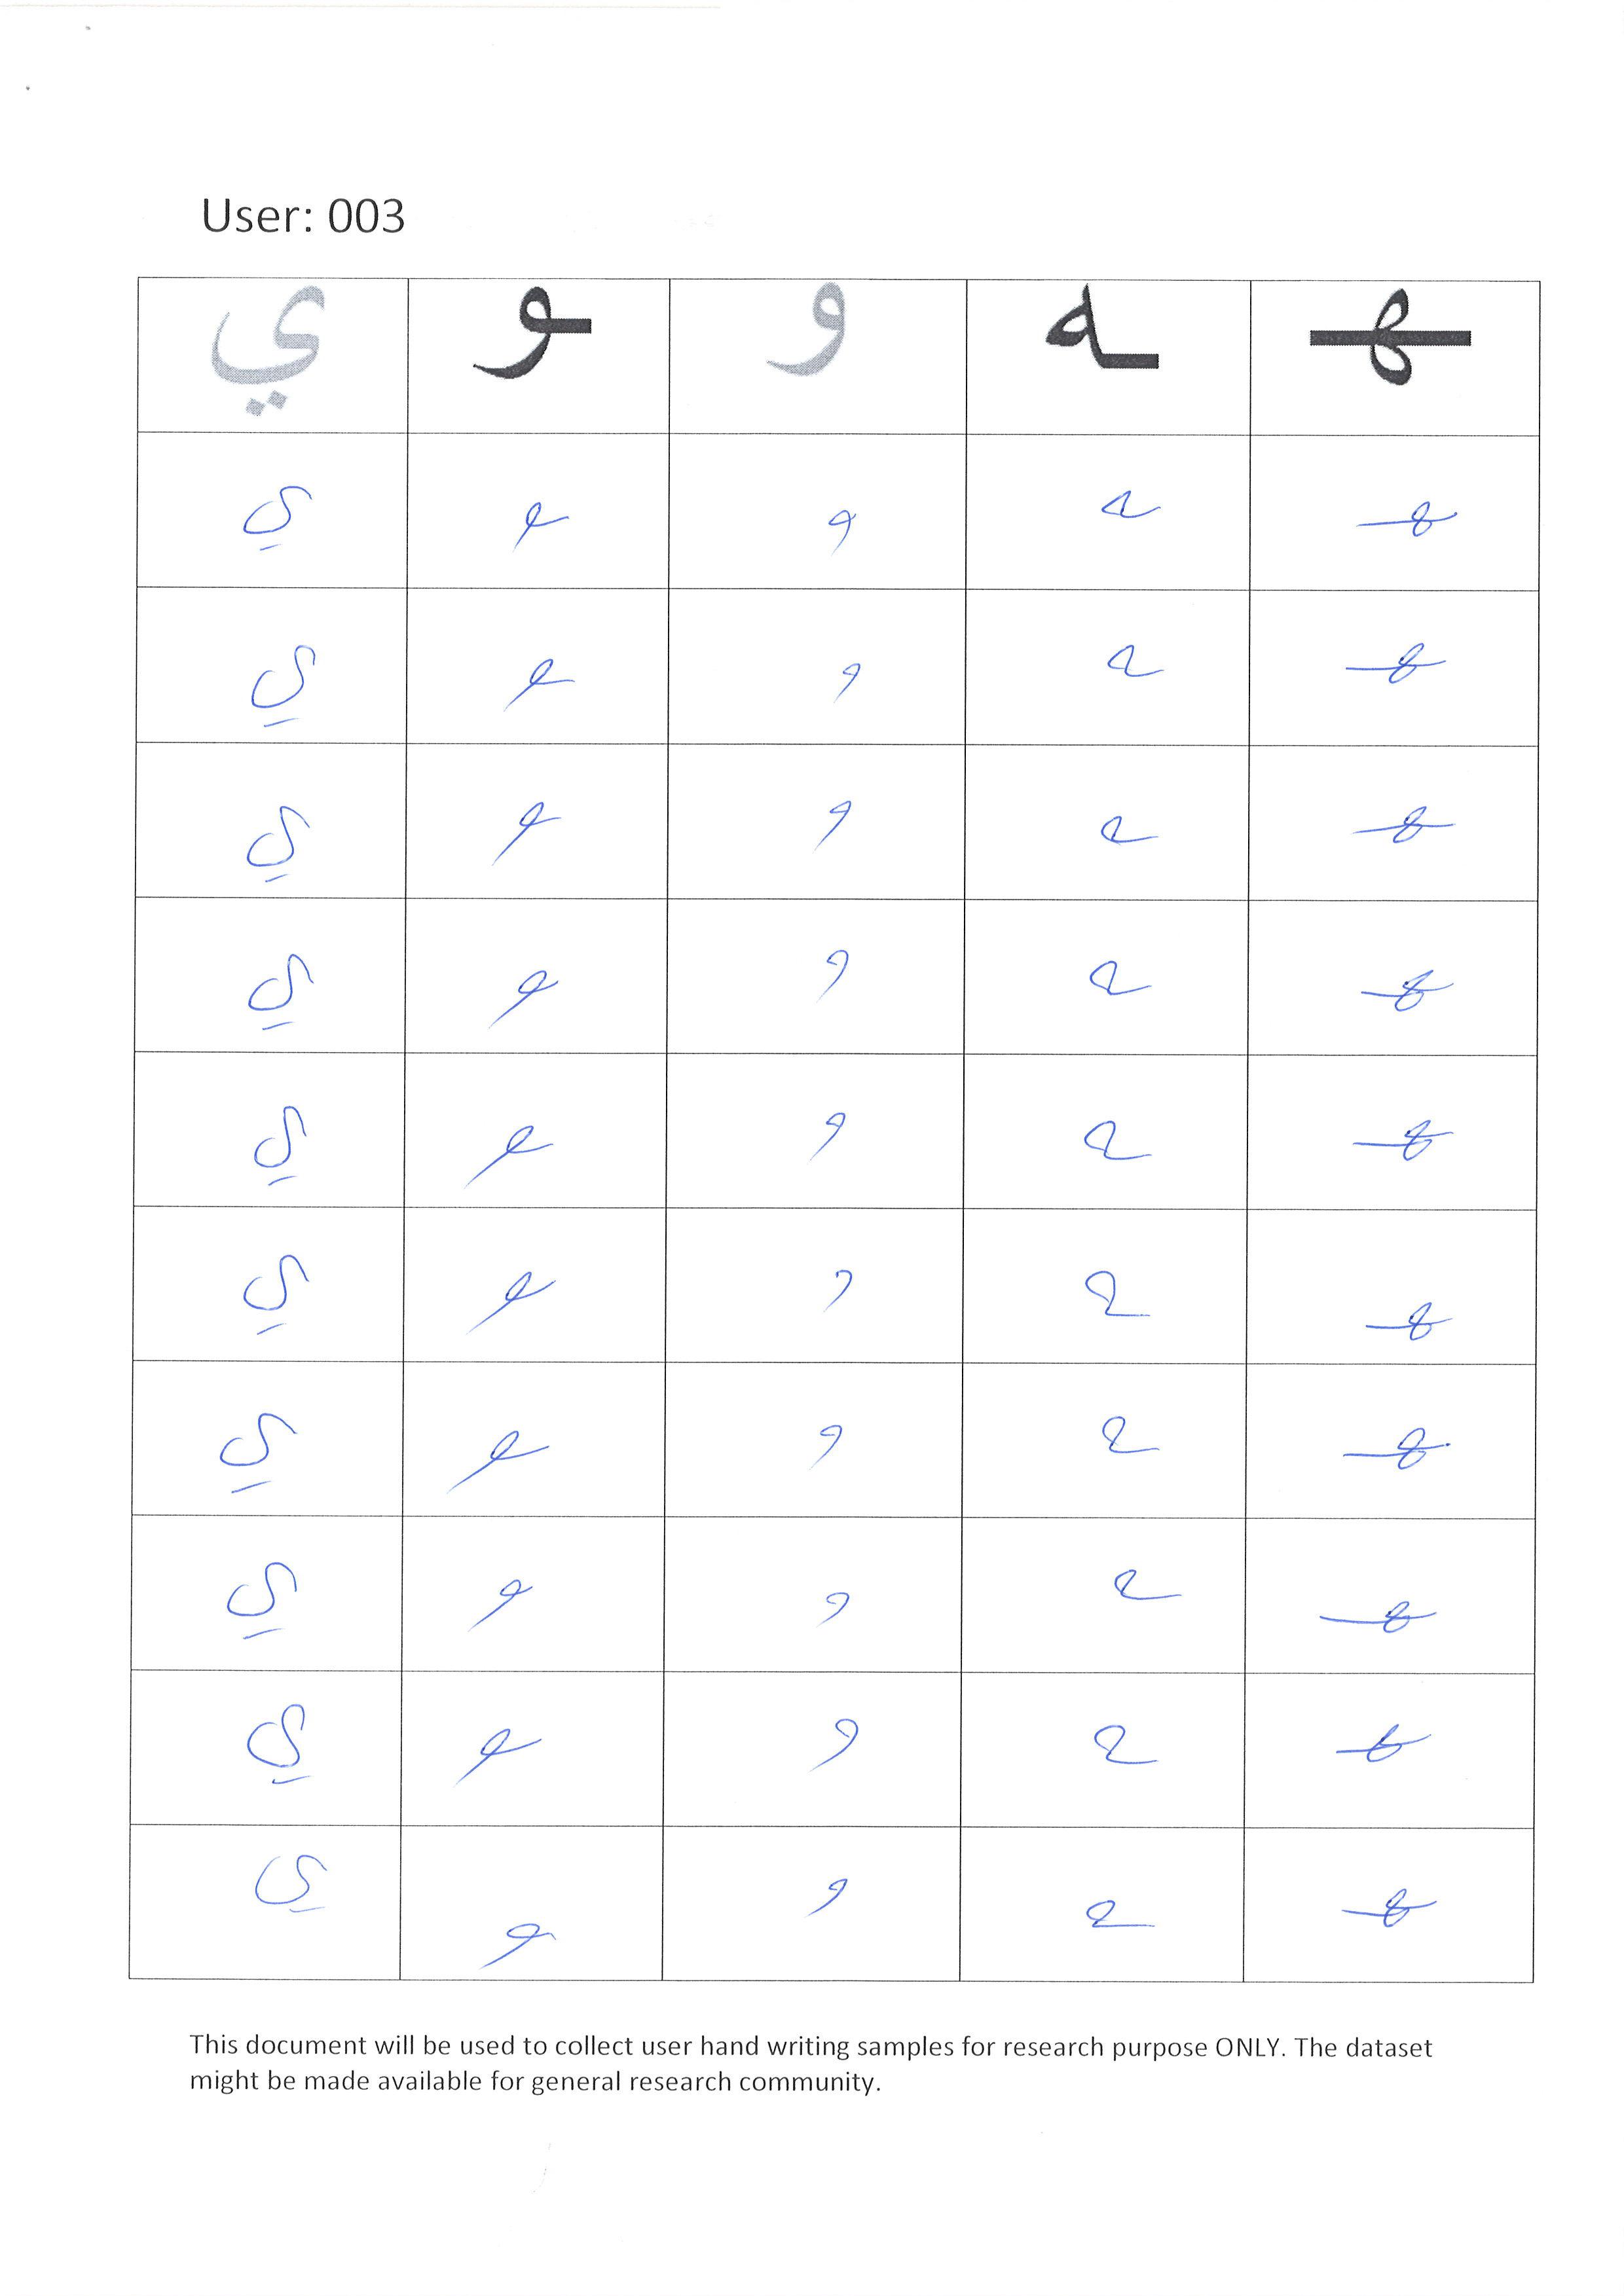 User: 003
ي ـو و ـه ـهـ
ي ـو و ـه ـهـ
ي ـو و ـه ـهـ
ي ـو و ـه ـهـ
ي ـو و ـه ـهـ
ي ـو و ـه ـهـ
ي ـو و ـه ـهـ
ي ـو و ـه ـهـ
ي ـو و ـه ـهـ
ي ـو و ـه ـهـ
ي ـو و ـه ـهـ
This document will be used to collect user hand writing samples for research purpose ONLY. The dataset
might be made available for general research community.